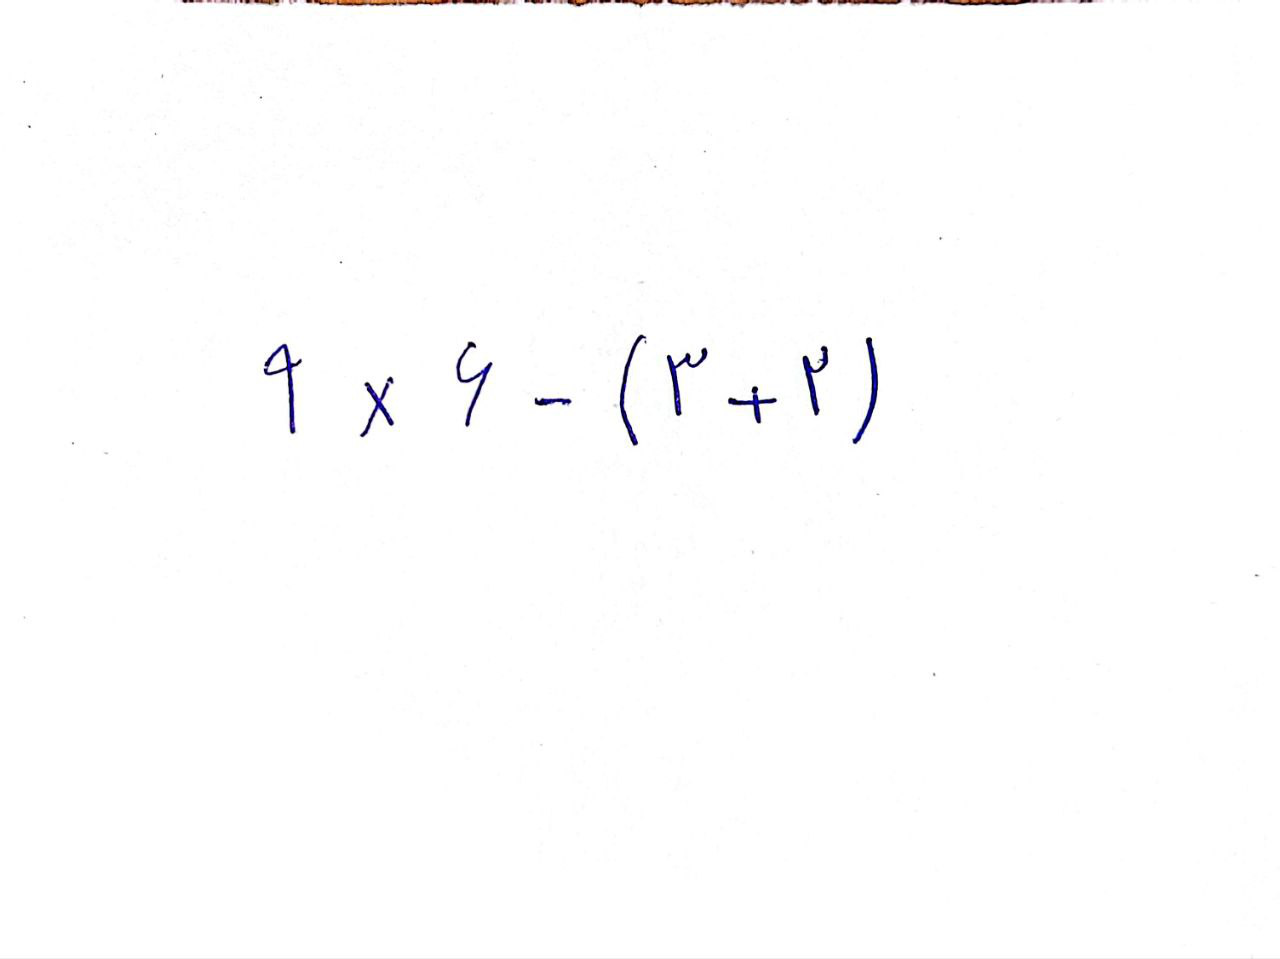 ۹ × ۶ - (۳ + ۲)